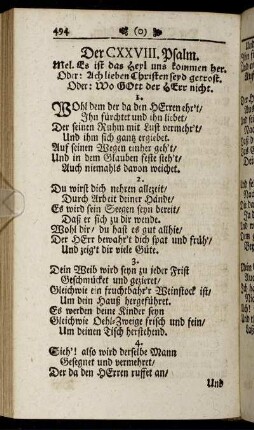 494 (0)
Der CXXVIII. Psalm.
Mel. Es ist das Heyl uns kommen her.
Oder: Ach lieben Christen seyd getrost.
Oder: Wo GOtt der HErr nicht.
1.
Wohl dem der da den HErren ehr't/
Ihn fürchtet und ihn liebet/
Der seinen Ruhm mit Lust vermehr't/
Und ihm sich gantz ergiebet.
Auf seinen Wegen einher geh't/
Und in dem Glauben feste steh't/
Auch niemahls davon weichet.
2.
Du wirst dich nehren allezeit/
Durch Arbeit deiner Hände/
Es wird sein Seegen seyn bereit/
Daß er sich zu dir wende.
Wohl dir/ du hast es gut allhie/
Der HErr bewahr't dich spat und früh/
Und zeig't dir viele Güte.
3.
Dein Weib wird seyn zu jeder Frist
Geschmücket und gezieret/
Gleichwie ein fruchtbahr'r Weinstock ist/
Um dein Hauß hergeführet.
Es werden deine Kinder seyn
Gleichwie Oehl-Zweige frisch und fein/
Um deinen Tisch herstehend.
4.
Sieh't! also wird derselbe Mann
Gesegnet und vermehret/
Der da den HErren ruffet an/
Und